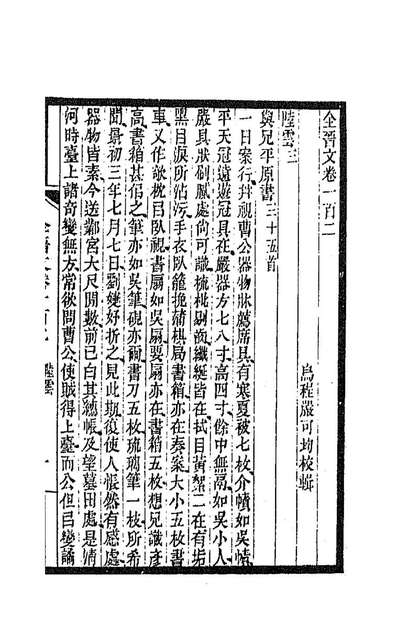 全晉文卷一百二
烏程嚴可均校輯
陸雲三
與兄平原書三十五首
一日案行并視曹公器物牀薦席具有寒夏被七枚介幘如吳幘
平天冠遠遊冠具在嚴器方七八寸高四寸餘中無鬲如吳小人
嚴具狀刷膩處尚可識梳枇剔齒纖綖皆在拭目黃絮二在有垢
黑目淚所沾汚手衣臥籠挽蒲棋局書箱亦在奏案大小五枚書
車又作歧枕㠯臥視書扇如吳扇要扇亦在書箱五枚想兄識彥
高書箱甚似之筆亦如吳筆硯亦爾書刀五枚琉璃筆一枝所希
聞景初三年七月七日劉婕妤折之見此期復使人悵然有感處
器物皆素今送鄴宮大尺閒數前已白其繐帳及望墓田處是淸
河時臺上諸奇變無方常欲問曹公使賊得上臺而公但㠯變譎
全晉文卷一百二
陸雲
一